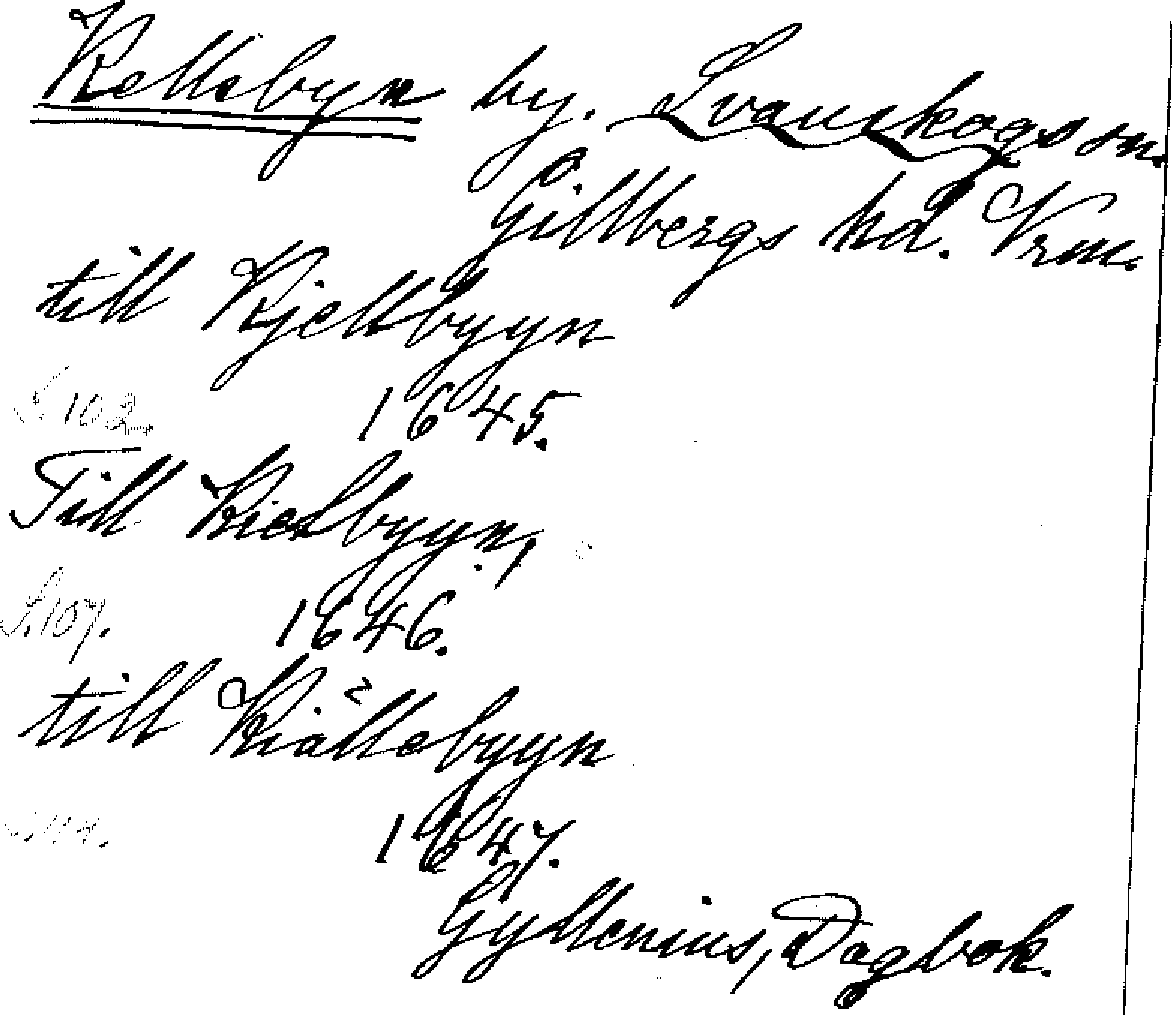 Kellsbyn by. Svanskogs sn.
Gillbergs hd. Vrm.
till Kjellbyyn
S. 102 1645.
Till Kielbyyn,
S. 107. 1646.
till Kiällebyyn
1647.
Gyllenius, Dagbok.